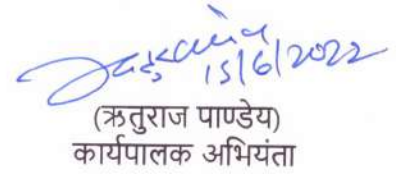 15/6/2022
(ऋतुराज पाण्डेय)
कार्यपालक अभियंता